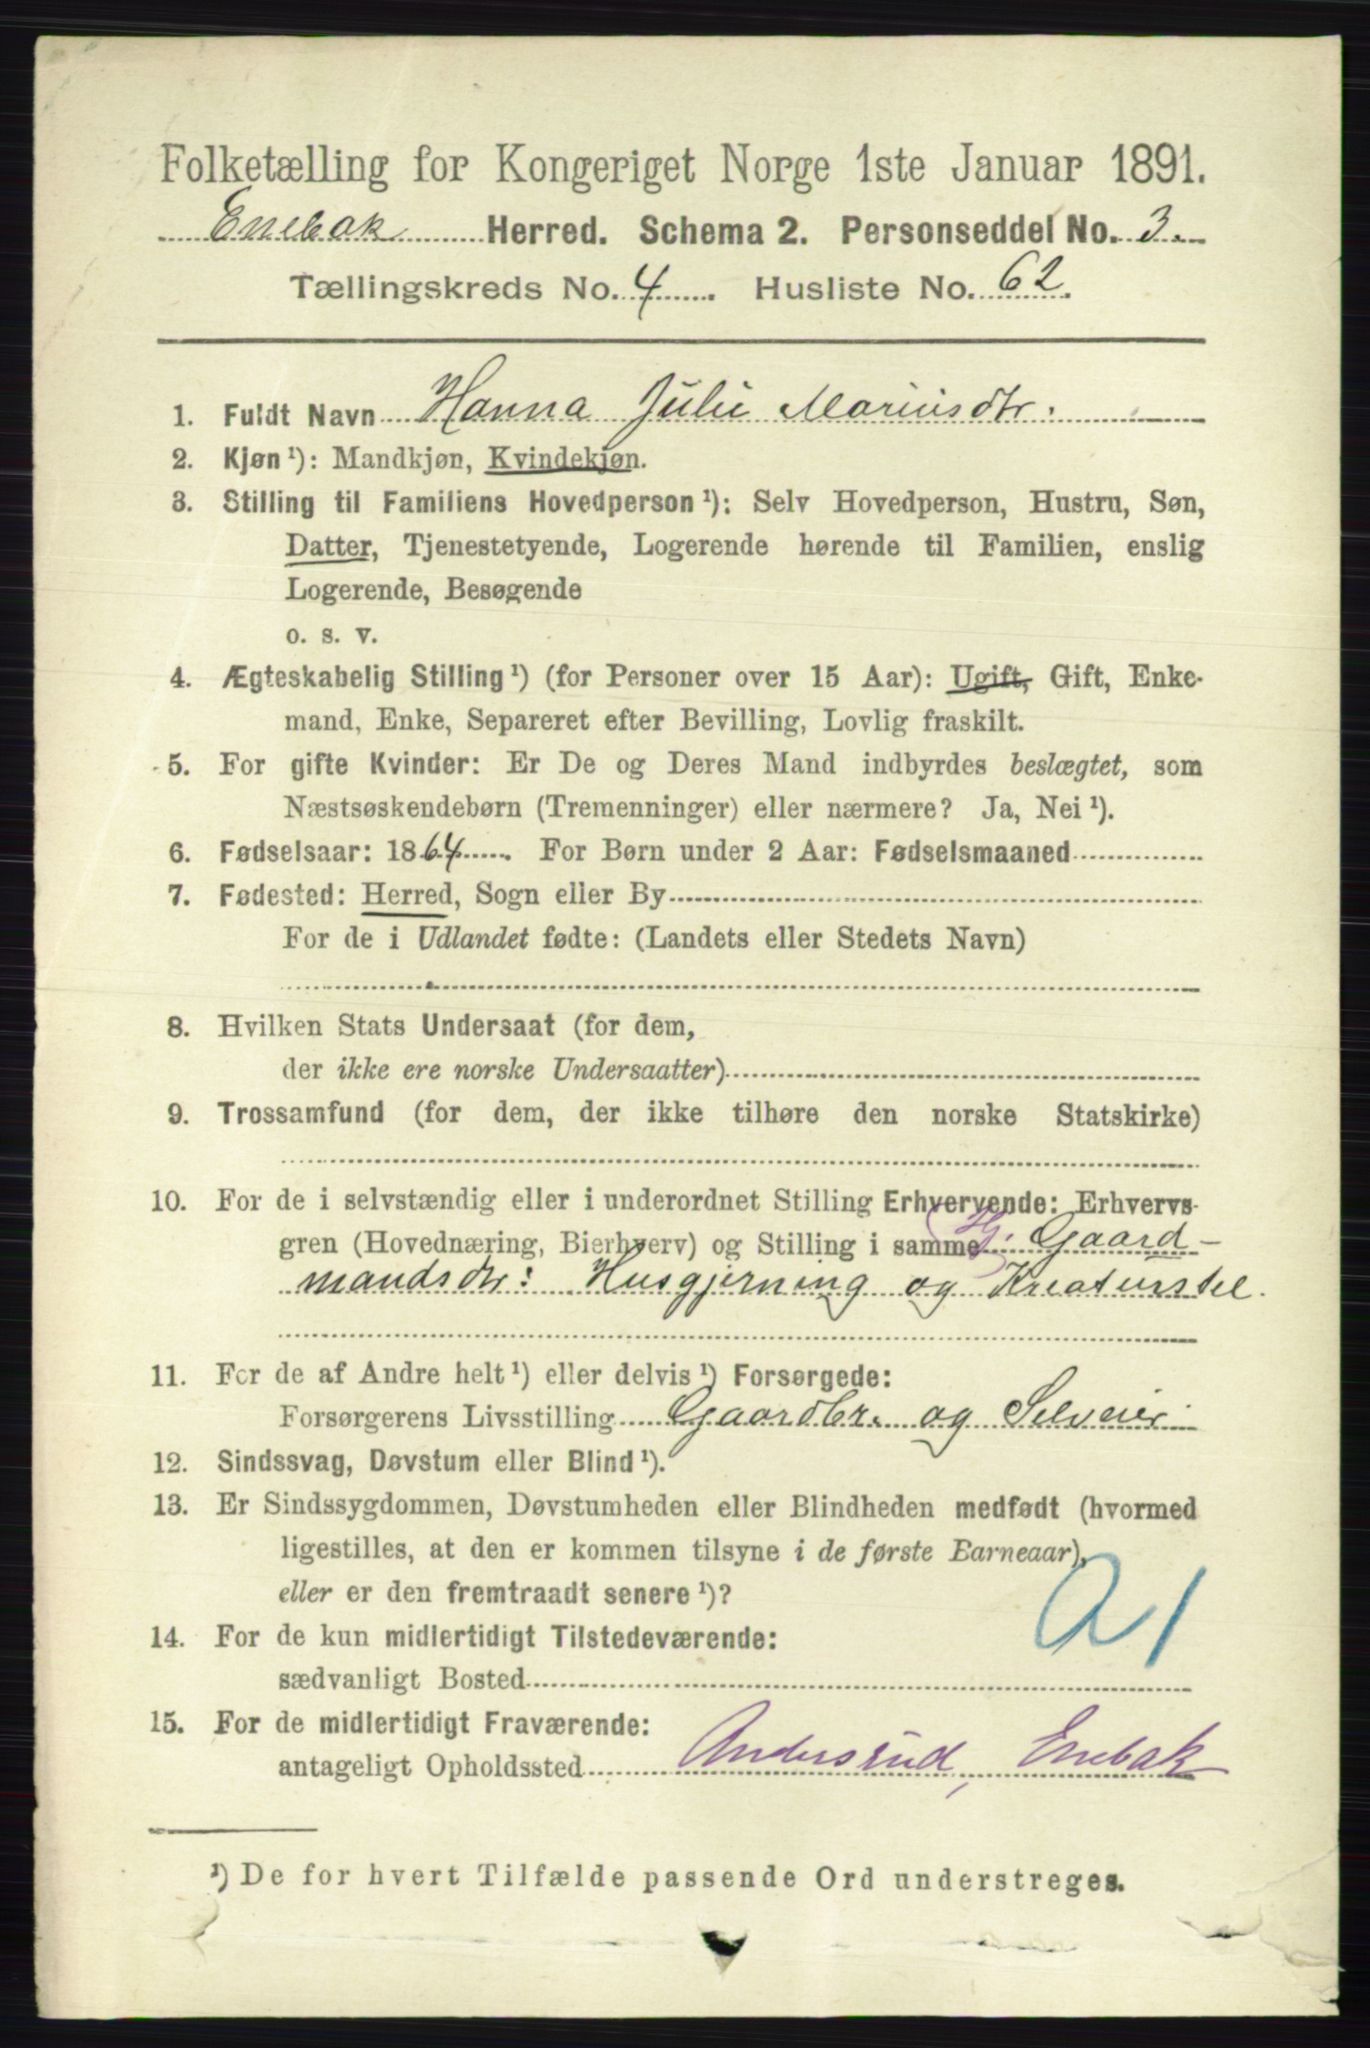 Folketælling for Kongeriget Norge 1ste Januar 1891.
Enebak Herred. Schema 2. Personseddel No. 3.
Tællingskreds No. 4. Husliste No. 62.
1. Fuldt Navn Hanna Julie Mariusdtr.
2. Kjøn ¹): Mandkjøn, Kvindekjøn.
3. Stilling til Familiens Hovedperson ¹): Selv Hovedperson, Hustru, Søn,
Datter, Tjenestetyende, Logerende hørende til Familien, enslig
Logerende, Besøgende
o. s. v.
4. Ægteskabelig Stilling ¹) (for Personer over 15 Aar): Ugift, Gift, Enke-
mand, Enke, Separeret efter Bevilling, Lovlig fraskilt.
5. For gifte Kvinder: Er De og Deres Mand indbyrdes beslægtet, som
Næstsøskendebørn (Tremenninger) eller nærmere? Ja, Nei ¹).
6. Fødselsaar: 1864. For Børn under 2 Aar: Fødselsmaaned
7. Fødested: Herred, Sogn eller By
For de i Udlandet fødte: (Landets eller Stedets Navn)
8. Hvilken Stats Undersaat (for dem,
der ikke ere norske Undersaatter)
9. Trossamfund (for dem, der ikke tilhøre den norske Statskirke)
10. For de i selvstændig eller i underordnet Stilling Erhvervende: Erhvervs-
gren (Hovednæring, Bierhverv) og Stilling i samme Gaard-
mandsdtr: Husgjerning og Kreaturstel.
11. For de af Andre helt ¹) eller delvis ¹) Forsørgede:
Forsørgerens Livsstilling Gaardbr. og Selveier
12. Sindssvag, Døvstum eller Blind ¹).
13. Er Sindssygdommen, Døvstumheden eller Blindheden medfødt (hvormed
ligestilles, at den er kommen tilsyne i de første Barneaar),
eller er den fremtraadt senere ¹)?
14. For de kun midlertidigt Tilstedeværende:
sædvanligt Bosted
15. For de midlertidigt Fraværende:
antageligt Opholdssted Andersrud, Enebak
¹) De for hvert Tilfælde passende Ord understreges.